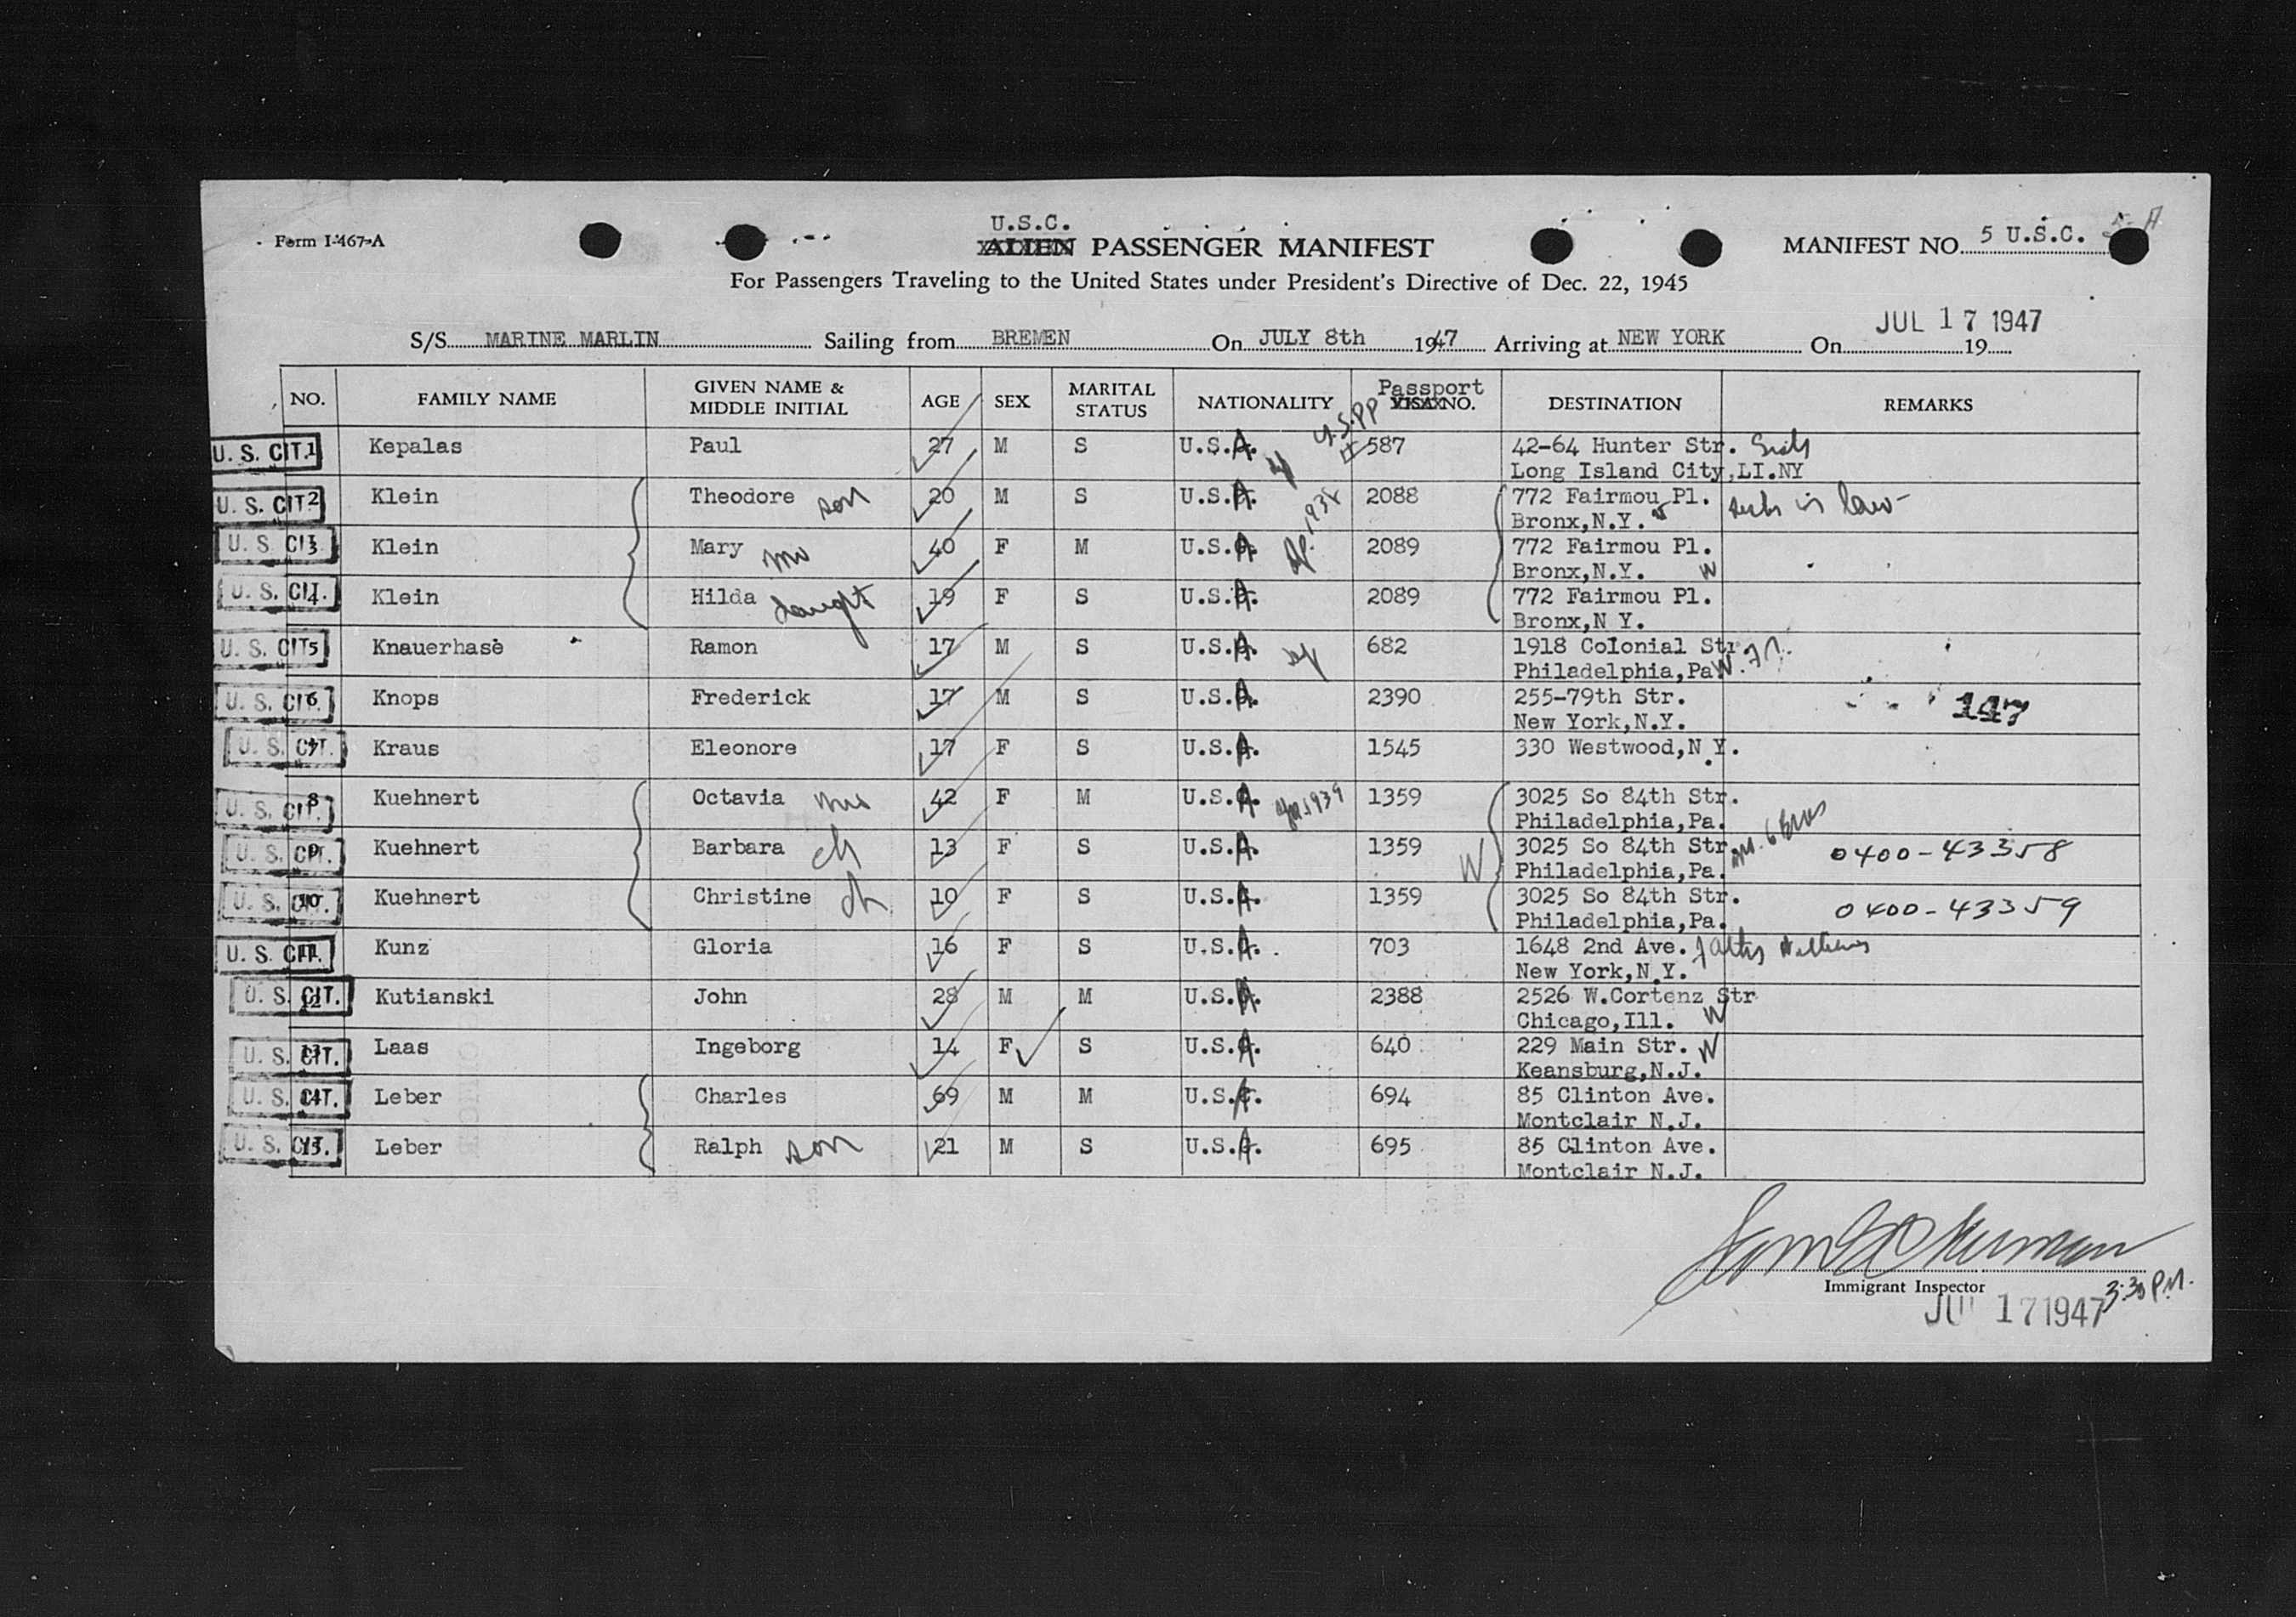 Form I-467-A
U.S.C.
ALIEN PASSENGER MANIFEST
MANIFEST NO. 5 U.S.C.
For Passengers Traveling to the United States under President's Directive of Dec. 22, 1945
JUL 17 1947
S/S MARINE MARLIN Sailing from BREMEN On JULY 8th 1947 Arriving at NEW YORK On 19
NO. FAMILY NAME GIVEN NAME & MIDDLE INITIAL AGE SEX MARITAL STATUS NATIONALITY Passport VISA NO. DESTINATION REMARKS
U.S. PP
U. S. CIT. 1 Kepalas Paul 27 M S U.S.A. 587 42-64 Hunter Str.
Long Island City,LI.NY
U. S. CIT. 2 Klein Theodore son 20 M S U.S.A. 2088 772 Fairmou Pl. in law
Bronx,N.Y.
U. S. CIT. 3 Klein Mary mo 40 F M U.S.A. 2089 772 Fairmou Pl.
Bronx,N.Y. W
U. S. CIT. 4 Klein Hilda daught 19 F S U.S.A. 2089 772 Fairmou Pl.
Bronx,N Y.
U. S. CIT. 5 Knauerhase Ramon 17 M S U.S.A. 682 1918 Colonial Str
Philadelphia,Pa.
U. S. CIT. 6 Knops Frederick 17 M S U.S.A. 2390 255-79th Str. 147
New York,N.Y.
U. S. CIT. 7 Kraus Eleonore 17 F S U.S.A. 1545 330 Westwood,N Y.
U. S. CIT. 8 Kuehnert Octavia mo 42 F M U.S.A. 1939 1359 3025 So 84th Str.
Philadelphia,Pa.
U. S. CIT. 9 Kuehnert Barbara ch 13 F S U.S.A. 1359 W 3025 So 84th Str. 0400-43358
Philadelphia,Pa.
U. S. CIT. 10 Kuehnert Christine ch 10 F S U.S.A. 1359 3025 So 84th Str. 0400-43359
Philadelphia,Pa.
U. S. CIT. 11 Kunz Gloria 16 F S U.S.A. 703 1648 2nd Ave.
New York,N.Y.
U. S. CIT. 12 Kutianski John 28 M M U.S.A. 2388 2526 W.Cortenz Str
Chicago,Ill. W
U. S. CIT. 13 Laas Ingeborg 14 F S U.S.A. 640 229 Main Str. W
Keansburg,N.J.
U. S. CIT. 14 Leber Charles 69 M M U.S.A. 694 85 Clinton Ave.
Montclair N.J.
U. S. CIT. 15 Leber Ralph son 21 M S U.S.A. 695 85 Clinton Ave.
Montclair N.J.
Immigrant Inspector
JUL 17 1947 3:30 P.M.